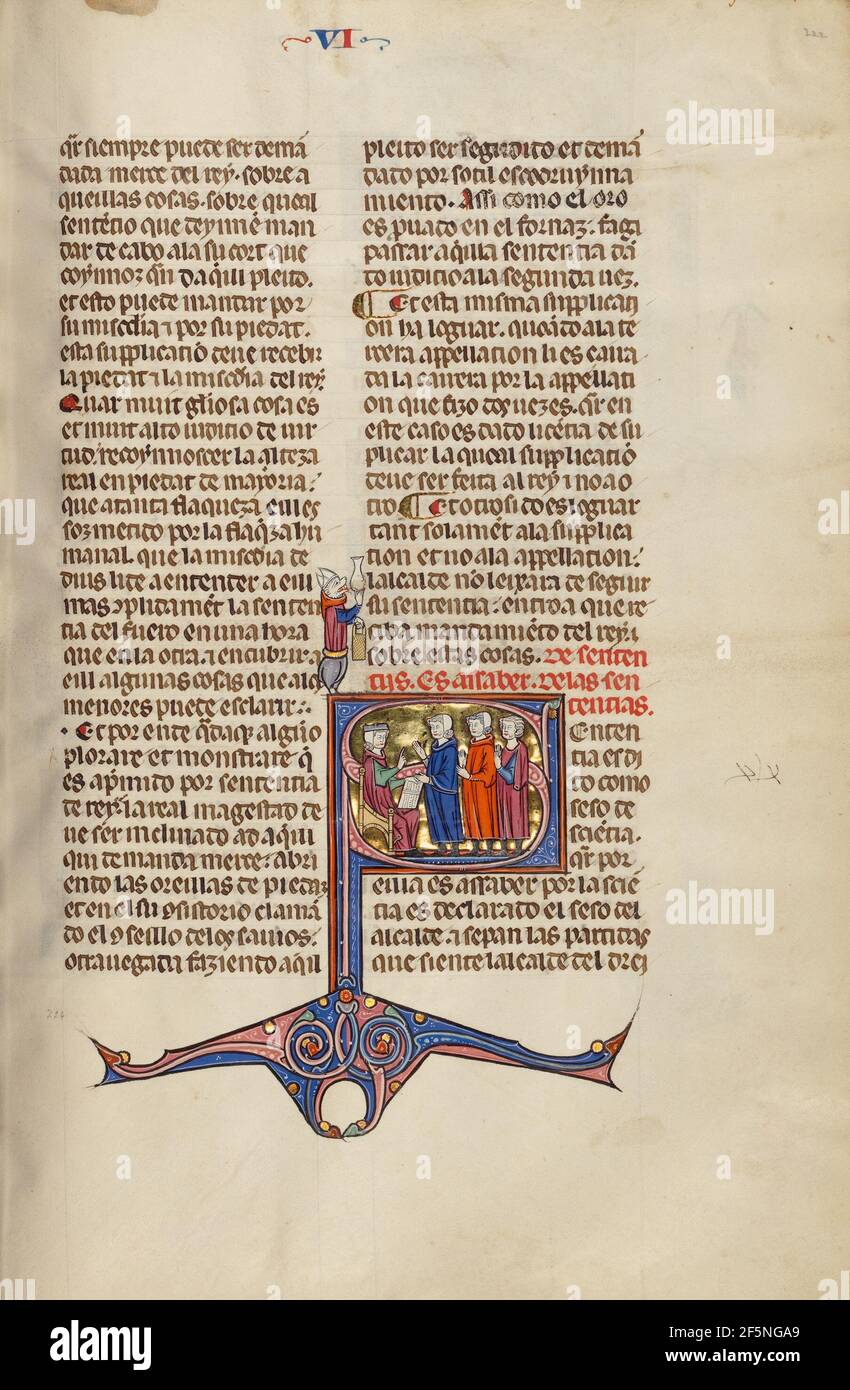 VI
222
qr̄ siempre puede ser demā
dada merce del rey. sobre a
queillas cosas. sobre queal
sentēcio que deyunē man
dar de cabo ala su cort que
coymoz qn̄ daqui pleito.
et esto puede mandar por
su misc̄dia ⁊ por su piedat.
esta supplicatiō deue recebir
la piedat ⁊ la misc̄dia del rey
Quar muit gl̄iosa cosa es
et muit alto iudicio de uir
tud. recoynnoscer la alteza
real en piedat de mayoria.
que a tanta flaqueza eill es
sozmetido por la flaq̄za hu
manal. que la misc̄dia de
dius li de a entender a eill
mas ꝯplidamēt la senten
tia del fuero en una hora
que en la otra. ⁊ encubrir a
eill algunas cosas que a los
menores puede esclarir.
Et por ende q̄daq̄ algūo
plorare et monstrare q̄
es apm̄ido por sentencia
de rey. la real magestad de
ue ser inclinado ad aqui
qui demanda merce. abri
endo las oreillas de piedat
et en el su ꝯsistorio clamā
do el ꝯseillo delos sauios.
otra uegada faziendo aqil
pleito ser segudito et demā
dato por sotil escodrinynna
miento. Assi como el oro
es puado en el fornaz. faga
passar aq̄lla sentencia dā
do iudicio ala segunda uez.
Et esta misma supplicati
on ha loguar. quādo ala te
rcera appellation li es carra
da la carrera por la appellati
on que fizo dos uezes. qr̄ en
este caso es dado licēcia de su
plicar la queal supplicatiō
deue ser feita al rey ⁊ no a o
tro Et otrosi do es loguar
tant solamēt ala supplica
tion et no ala appellation.
lalcalde nō leixara de seguir
su sentencia. entroa que re
ciba mandamiēto del rey. ⁊
sobre estas cosas. De senten
tiis. Es assaber. Delas sen
tentias.
Enten
tia es di
to como
seso de
sciēcia.
qr̄ por
eilla es assaber por la sciē
tia es declarado el seso del
alcalde. ⁊ sepan las partidas
que siente lalcalde del drei
224
alamy
a
Image ID: 2F5NGA9
www.alamy.com